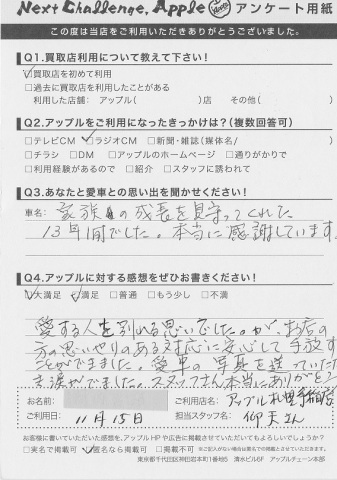 Next Challenge, Apple アンケート用紙
この度は当店をご利用いただきありがとうございました。
Q1.買取店利用について教えて下さい!
☑買取店を初めて利用
□過去に買取店を利用したことがある
利用した店舗: アップル( )店 その他( )
Q2.アップルをご利用になったきっかけは?(複数回答可)
□テレビCM ☑ラジオCM □新聞・雑誌(媒体名/ )
□チラシ □DM □アップルのホームページ □通りがかりで
□利用経験があるので □紹介 □スタッフに誘われて
Q3.あなたと愛車との思い出を聞かせてください!
車名: 家族の成長を見守ってくれた
13年間でした。本当に感謝しています
Q4.アップルに対する感想をぜひお書きください!
☑大満足 ☑満足 □普通 □もう少し □不満
愛する人と別れる思いでした。が、お店の
方の思いやりのある対応に安心して手放す
ことができました。愛車の写真を送っていただ
き涙がでました。スタッフさん本当にありがとう
お名前: ご利用店名: アップル札幌手稲店
ご利用日: 11月15日 担当スタッフ名: 仰天さん
お客様に書いていただいた感想を、アップルHPや広告に掲載させていただいてもよろしいでしょうか?
□実名で掲載可 ☑匿名なら掲載可 □掲載不可 ※ご記入がない場合は匿名での掲載とさせていただきます。
東京都千代田区神田岩本町1番地5 清水ビル6F アップルチェーン本部